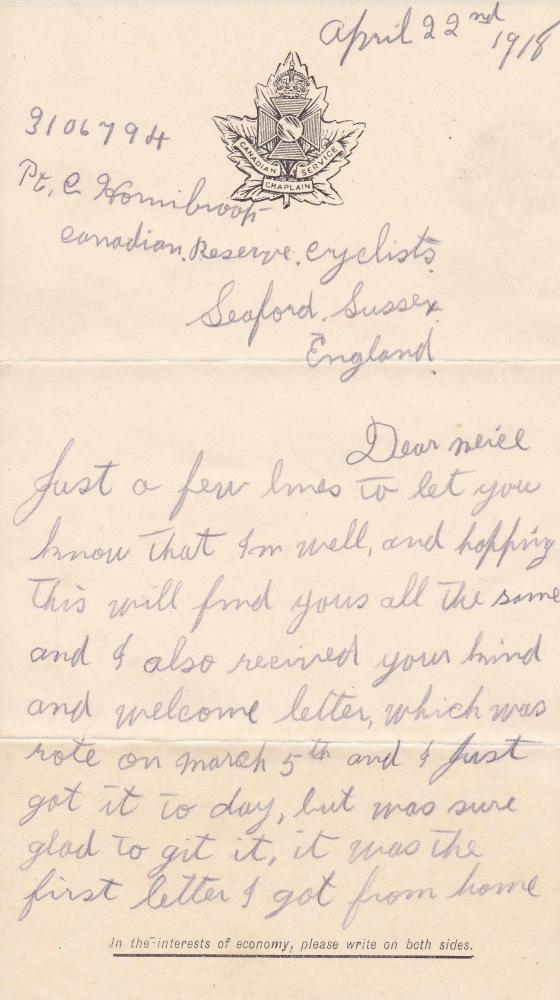 April 22nd
1918
CANADIAN CHAPLAIN SERVICE
3106794
Pt. C. Hornibrook
Canadian. Reserve. Cyclists
Seaford. Sussex
England
Dear neice
Just a few lines to let you
know that Im well, and hopping
this will find yous all the same
and I also recived your kind
and welcome letter, which was
rote on march 5th and I Just
got it to day, but was sure
glad to git it, it was the
first letter I got from home
In the interests of economy, please write on both sides.